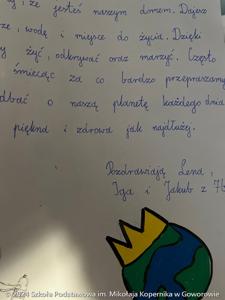 , że jesteś naszym domem. Dajesz
wodę i miejsce do życia. Dzięki
żyć, odkrywać oraz marzyć. Często
śmiecąc za co bardzo przepraszamy
dbać o naszą planetę każdego dnia
piękna i zdrowa jak najdłużej.
Pozdrawiają Lena,
Iga i Jakub z 7b
© 2024 Szkoła Podstawowa im. Mikołaja Kopernika w Goworowie